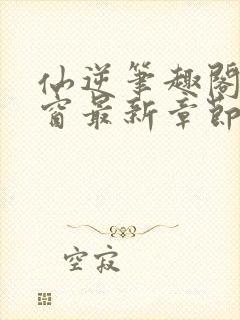 仙逆笔趣阁
窗最新章节
空寂